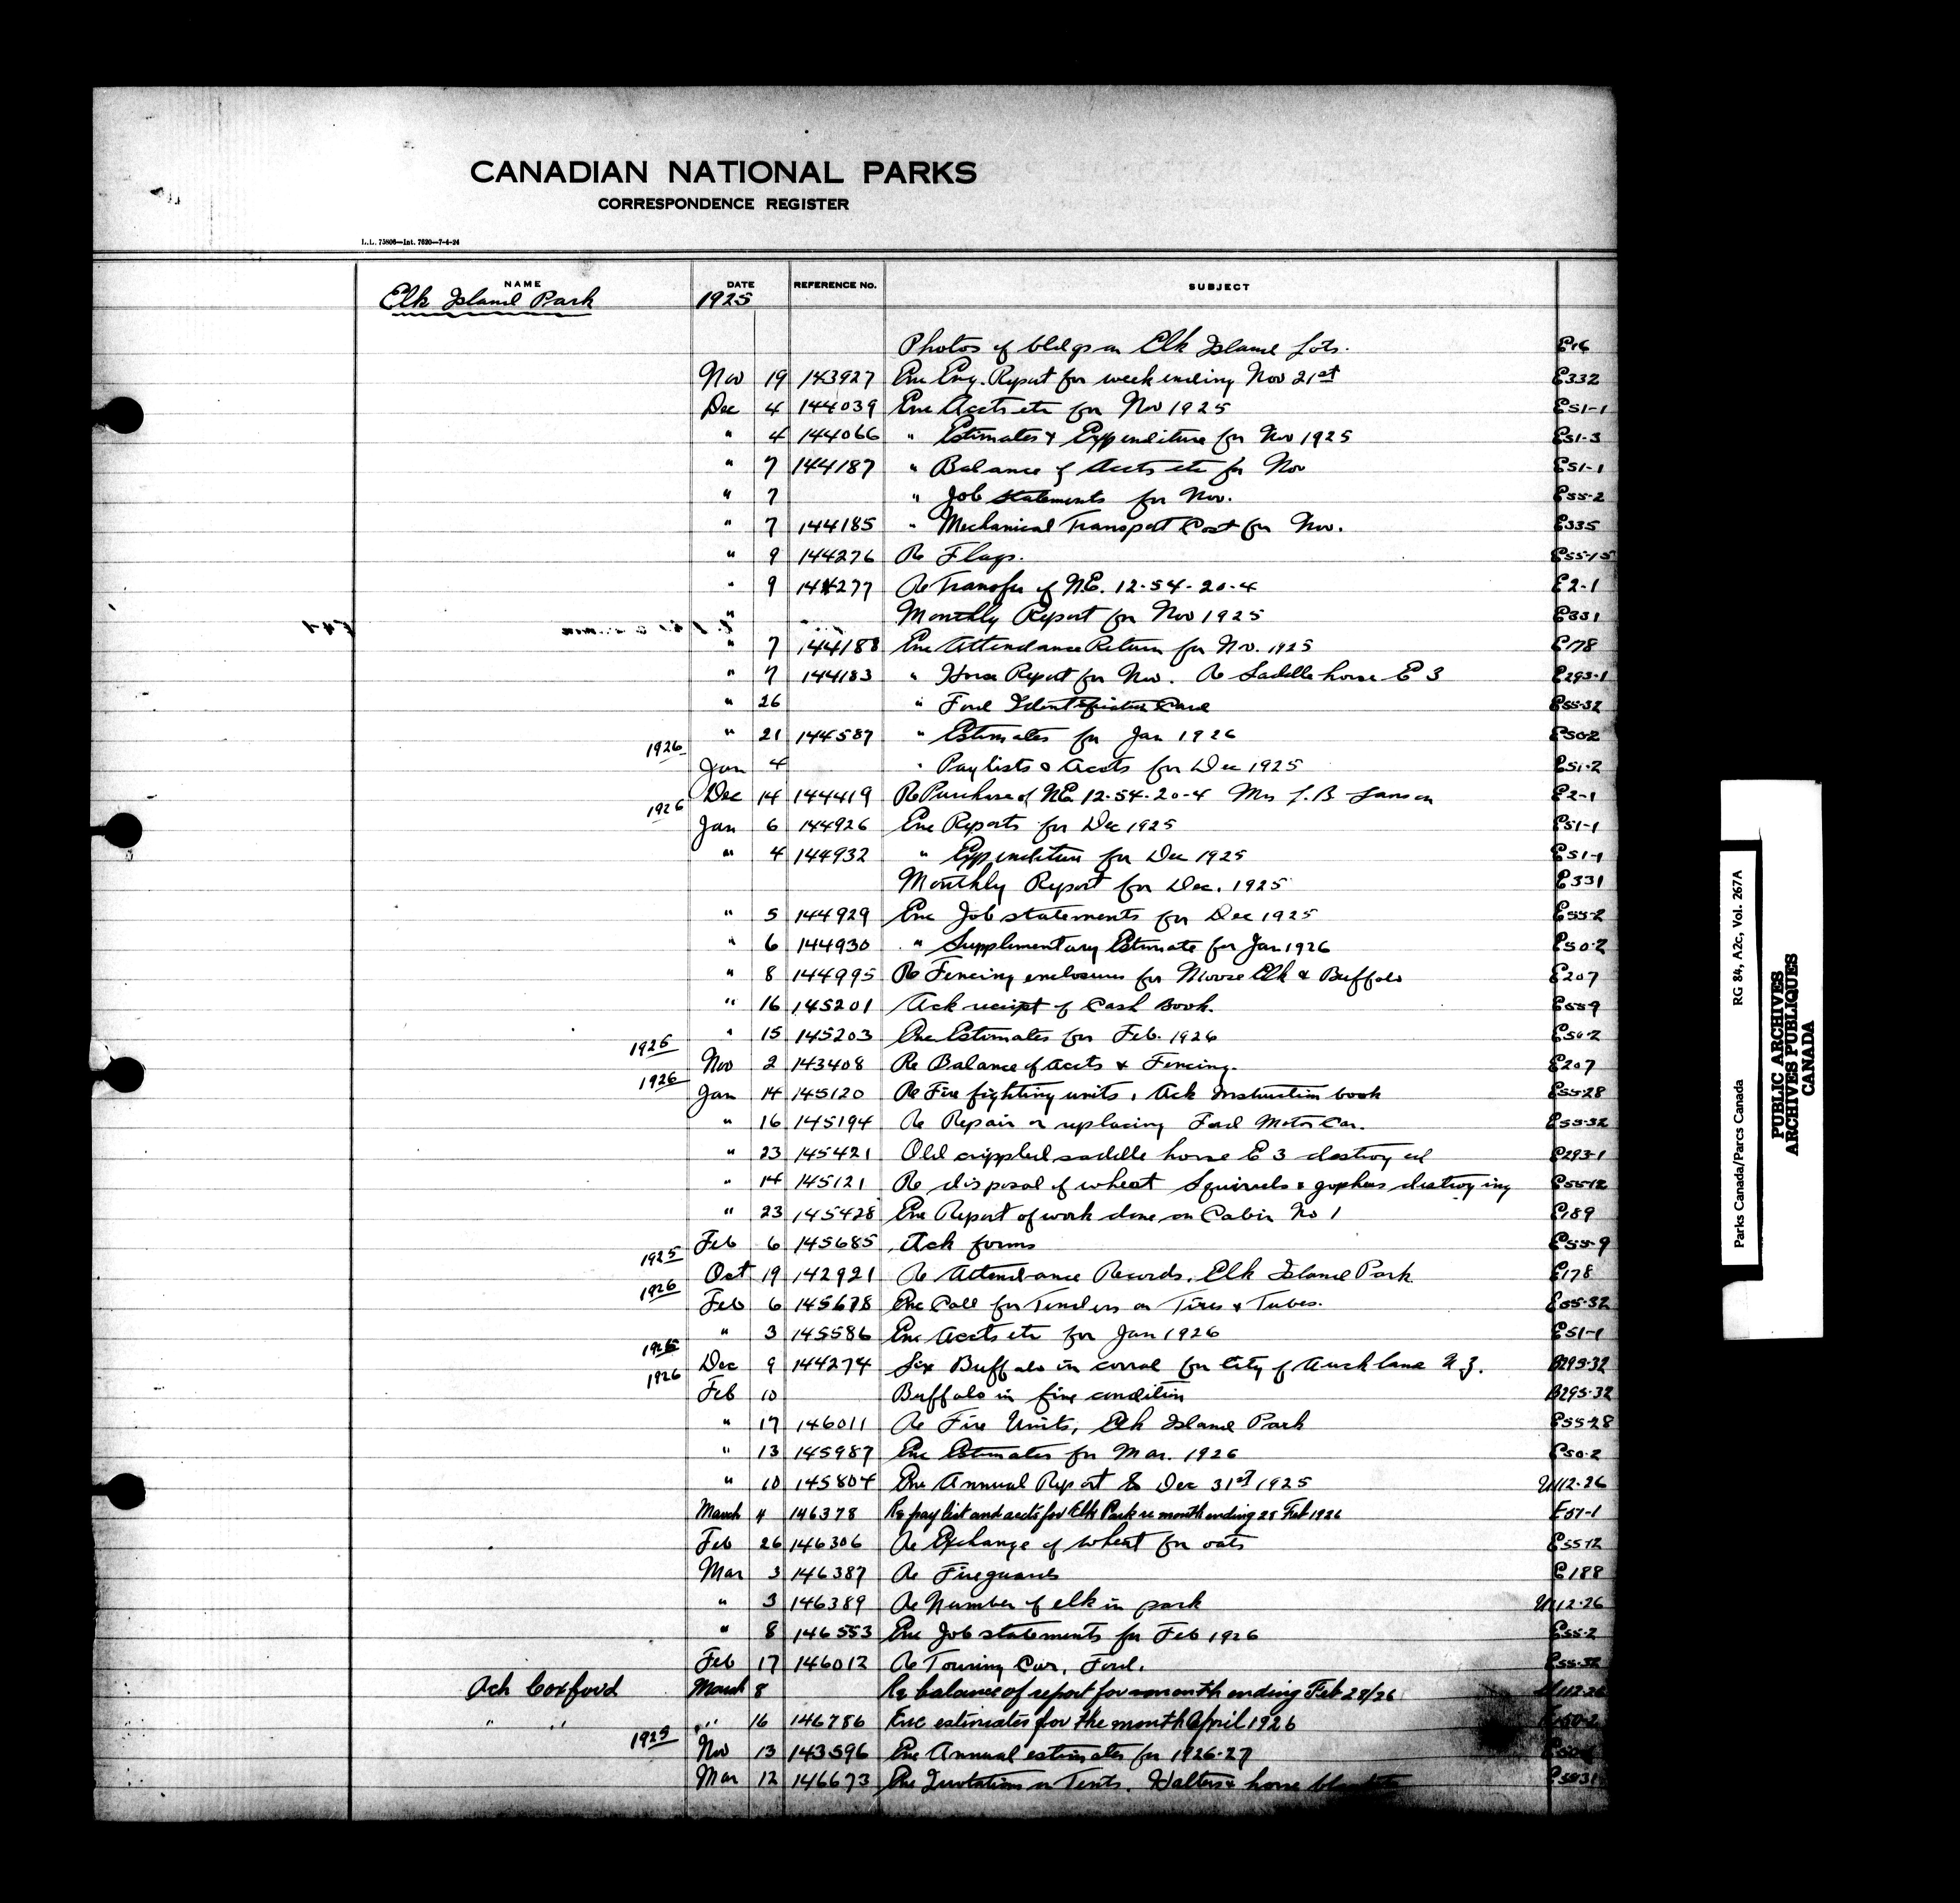 CANADIAN NATIONAL PARKS
CORRESPONDENCE REGISTER
L.L. 75808—Int. 7620—7-4-24
NAME DATE REFERENCE No. SUBJECT
Elk Island Park 1925
Photos of bldgs on Elk Island Lots. E16
Nov 19 143927 Enc Eng. Report for week ending Nov 21st E332
Dec 4 144039 Enc Accts etc for Nov 1925 E51-1
" 4 144066 " Estimates & Expenditure for Nov 1925 E51-3
" 7 144187 " Balance of Accts etc for Nov E51-1
" 7 " Job statements for Nov. E55-2
" 7 144185 " Mechanical Transport Cost for Nov. E335
" 9 144276 Re Flags. E55-15
" 9 144277 Re Transfer of N.E. 12-54-20-4 E2-1
" Monthly Report for Nov 1925 E331
" 7 144188 Enc Attendance Return for Nov. 1925 E178
" 7 144183 " Horse Report for Nov. Re Saddle horse E 3 E293-1
" 26 " Ford Identification Card E55-32
" 21 144587 " Estimates for Jan 1926 E50-2
1926 Jan 4 " Pay lists & Accts for Dec 1925 E51-2
Dec 14 144419 Re Purchase of N.E. 12-54-20-4 Mrs L.B. Lawson E2-1
1926 Jan 6 144926 Enc Reports for Dec 1925 E51-1
" 4 144932 " Expenditure for Dec 1925 E51-1
Monthly Report for Dec. 1925 E331
" 5 144929 Enc Job statements for Dec 1925 E55-2
" 6 144930 " Supplimentary Estimate for Jan 1926 E50-2
" 8 144995 Re Fencing enclosures for Moose Elk & Buffalo E207
" 16 145201 Ack receipt of Cash Book. E55-9
" 15 145203 Enc Estimates for Feb. 1926 E50-2
1925 Nov 2 143408 Re Balance of Accts & Fencing. E207
1926 Jan 14 145120 Re Fire fighting units, Ack Instruction book E55-28
" 16 145194 Re Repair or replacing Ford Motor Car. E55-32
" 23 145421 Old crippled saddle horse E 3 destroyed E293-1
" 14 145121 Re disposal of wheat Squirrels & gophers destroying E55-12
" 23 145428 Enc Report of work done on Cabin No 1 E189
Feb 6 145685 Ack forms E55-9
1925 Oct 19 142921 Re Attendance Records, Elk Island Park E178
1926 Feb 6 145678 Enc Call for Tenders on Tires & Tubes. E55-32
" 3 145586 Enc Accts etc for Jan 1926 E51-1
1925 Dec 9 144274 Six Buffalo in corral for City of Auckland N Z. B295-32
1926 Feb 10 Buffalo in fine condition B295-32
" 17 146011 Re Fire Units, Elk Island Park E55-28
" 13 145987 Enc Estimates for Mar. 1926 E50-2
" 10 145804 Enc Annual Report to Dec 31st 1925 U112-26
March 4 146378 Re pay list and accts for Elk Park re month ending 28 Feb 1926 E51-1
Feb 26 146306 Re Exchange of wheat for oats E55-12
Mar 3 146387 Re Fireguards E188
" 3 146389 Re Number of elk in park U112-26
" 8 146553 Enc Job statements for Feb 1926 E55-2
Feb 17 146012 Re Touring Car, Ford. E55-32
Ack Coxford March 8 Re balance of report for month ending Feb 28/26 U112-26
" " " 16 146786 Enc estimates for the month April 1926 E50-2
1925 Nov 13 143596 Enc Annual estimates for 1926-27
Mar 12 146673 Enc Quotations on Tents. Halters & horse blankets
Parks Canada/Parcs Canada RG 84, A2c, Vol. 267A
PUBLIC ARCHIVES
ARCHIVES PUBLIQUES
CANADA